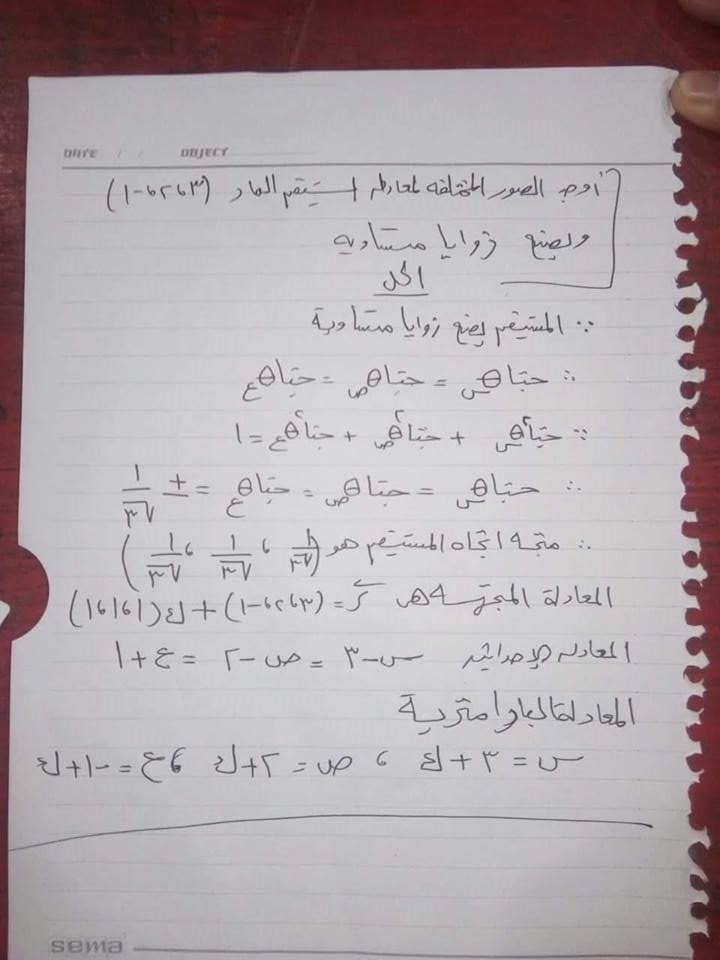 DATE / / OBJECT
أوجد الصور المختلفة لمعادلة المستقيم المار (٣، ٢، -١)
ويصنع زوايا متساوية
الحل
∵ المستقيم يصنع زوايا متساوية
∴ جتاθس = جتاθص = جتاθع
∵ جتا²θس + جتا²θص + جتا²θع = ١
∴ جتاθس = جتاθص = جتاθع = ± ١/√٣
∴ متجه اتجاه المستقيم هو (١/√٣، ١/√٣، ١/√٣)
المعادلة المتجهة هى ر = (٣، ٢، -١) + ك(١، ١، ١)
المعادلة الإحداثية س - ٣ = ص - ٢ = ع + ١
المعادلة البارامترية
س = ٣ + ك ، ص = ٢ + ك ، ع = -١ + ك
sema